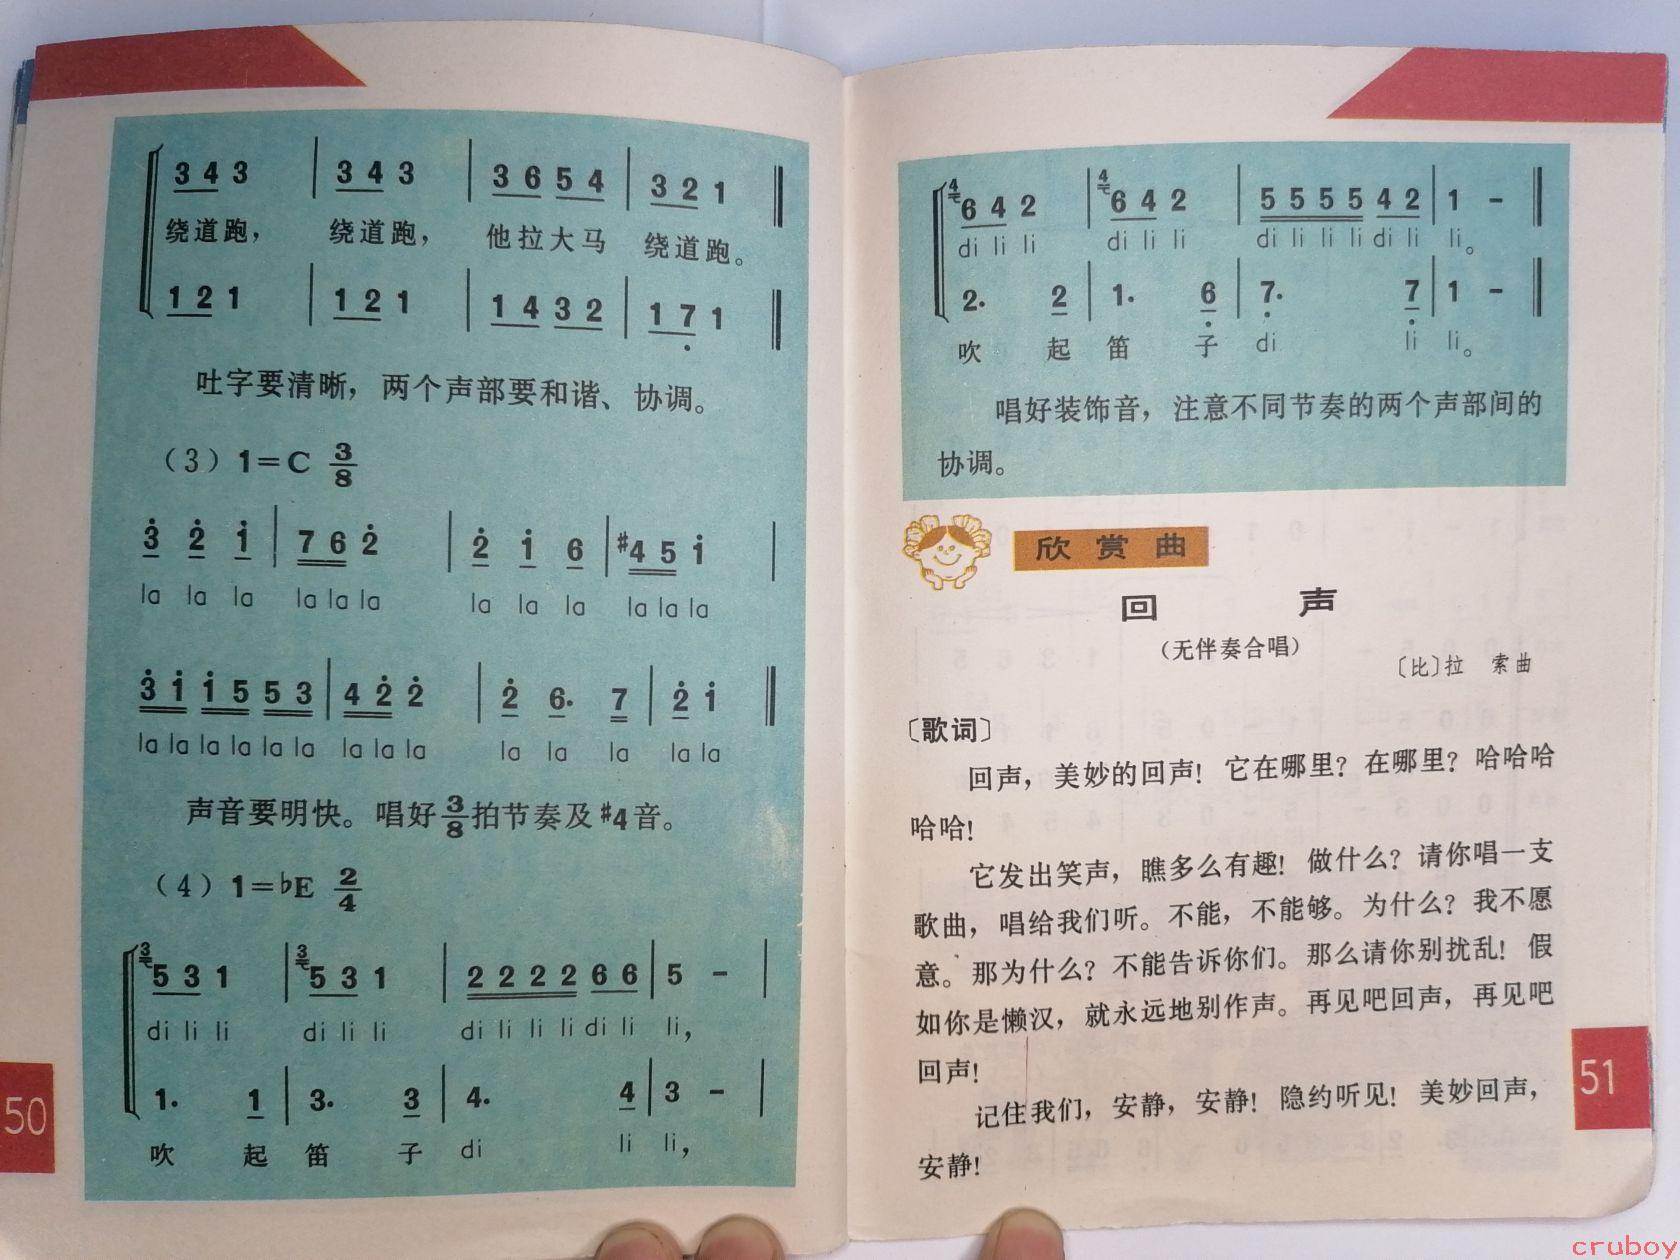 3 4 3 | 3 4 3 | 3 6 5 4 | 3 2 1 ‖
绕道跑， 绕道跑， 他拉大马 绕道跑。
1 2 1 | 1 2 1 | 1 4 3 2 | 1 7̣ 1 ‖
吐字要清晰，两个声部要和谐、协调。
（3）1＝C 3/8
3̇ 2̇ 1̇ | 7 6 2̇ | 2̇ 1̇ 6 | #4 5 1̇ |
la la la la la la la la la la la la
3̇ 1̇ 1̇ 5 5 3 | 4 2̇ 2̇ | 2̇ 6. 7 | 2̇ 1̇ ‖
la la la la la la la la la la la la la la
声音要明快。唱好3/8拍节奏及#4音。
（4）1＝♭E 2/4
3 5 3 1 | 3 5 3 1 | 2 2 2 2 6 6 | 5 － |
di li li di li li di li li li di li li，
1. 1 | 3. 3 | 4. 4 | 3 － |
吹 起 笛 子 di li li，
50
4 6 4 2 | 4 6 4 2 | 5 5 5 5 4 2 | 1 － ‖
di li li di li li di li li li di li li。
2. 2 | 1. 6̣ | 7̣. 7̣ | 1 － ‖
吹 起 笛 子 di li li。
唱好装饰音，注意不同节奏的两个声部间的
协调。
欣赏曲
回 声
（无伴奏合唱）
〔比〕拉 索曲
〔歌词〕
回声，美妙的回声！它在哪里？在哪里？哈哈哈
哈哈！
它发出笑声，瞧多么有趣！做什么？请你唱一支
歌曲，唱给我们听。不能，不能够。为什么？我不愿
意。那为什么？不能告诉你们。那么请你别扰乱！假
如你是懒汉，就永远地别作声。再见吧回声，再见吧
回声！
记住我们，安静，安静！隐约听见！美妙回声，
安静！
51
cruboy